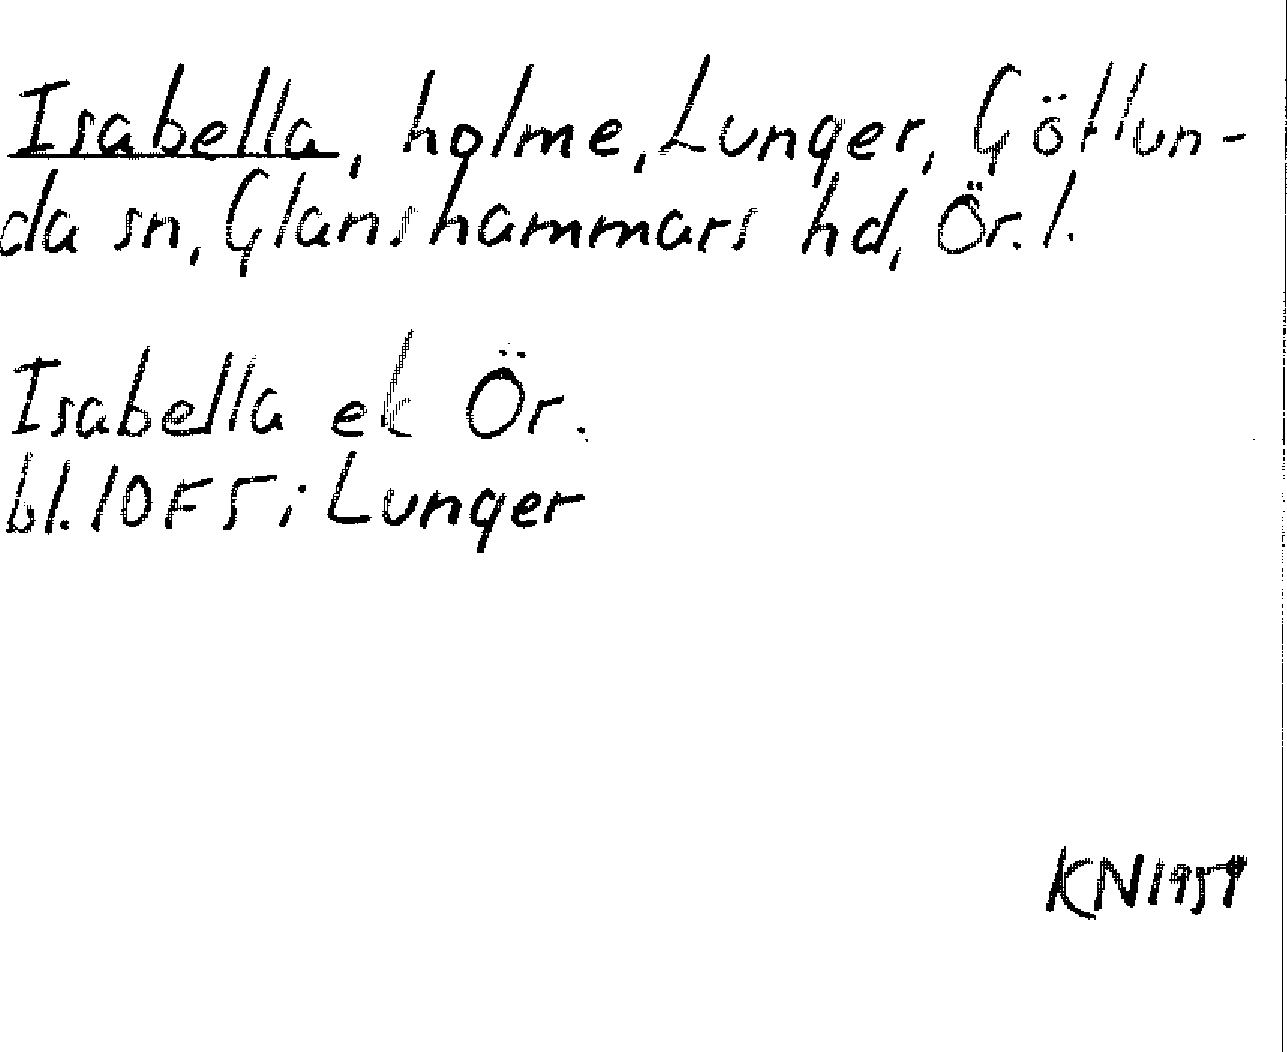 Isabella, holme, Lunger, Götlun-
da sn, Glanshammars hd, Ör. l.
Isabella ek Ör.
bl. 10F5 i Lunger
KN1959